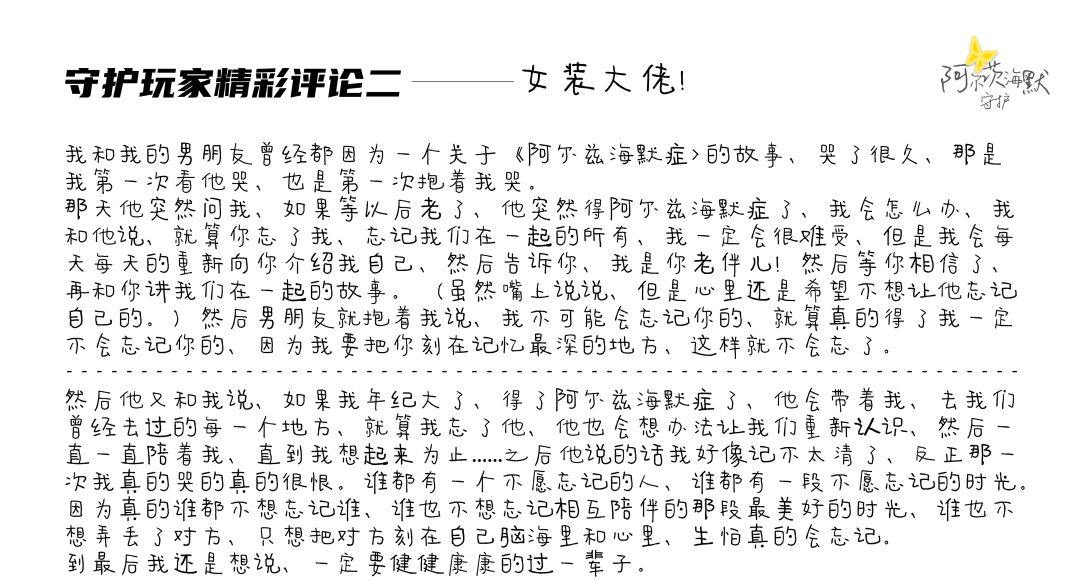 守护玩家精彩评论二 女装大佬!
阿尔茨海默
守护
我和我的男朋友曾经都因为一个关于《阿尔兹海默症》的故事、哭了很久、那是
我第一次看他哭、也是第一次抱着我哭。
那天他突然问我、如果等以后老了、他突然得阿尔兹海默症了、我会怎么办、我
和他说、就算你忘了我、忘记我们在一起的所有、我一定会很难受、但是我会每
天每天的重新向你介绍我自己、然后告诉你、我是你老伴儿!然后等你相信了、
再和你讲我们在一起的故事。(虽然嘴上说说、但是心里还是希望不想让他忘记
自己的。)然后男朋友就抱着我说、我不可能会忘记你的、就算真的得了我一定
不会忘记你的、因为我要把你刻在记忆最深的地方、这样就不会忘了。
然后他又和我说、如果我年纪大了、得了阿尔兹海默症了、他会带着我、去我们
曾经去过的每一个地方、就算我忘了他、他也会想办法让我们重新认识、然后一
直一直陪着我、直到我想起来为止......之后他说的话我好像记不太清了、反正那一
次我真的哭的真的很恨。谁都有一个不愿忘记的人、谁都有一段不愿忘记的时光。
因为真的谁都不想忘记谁、谁也不想忘记相互陪伴的那段最美好的时光、谁也不
想弄丢了对方、只想把对方刻在自己脑海里和心里、生怕真的会忘记。
到最后我还是想说、一定要健健康康的过一辈子。